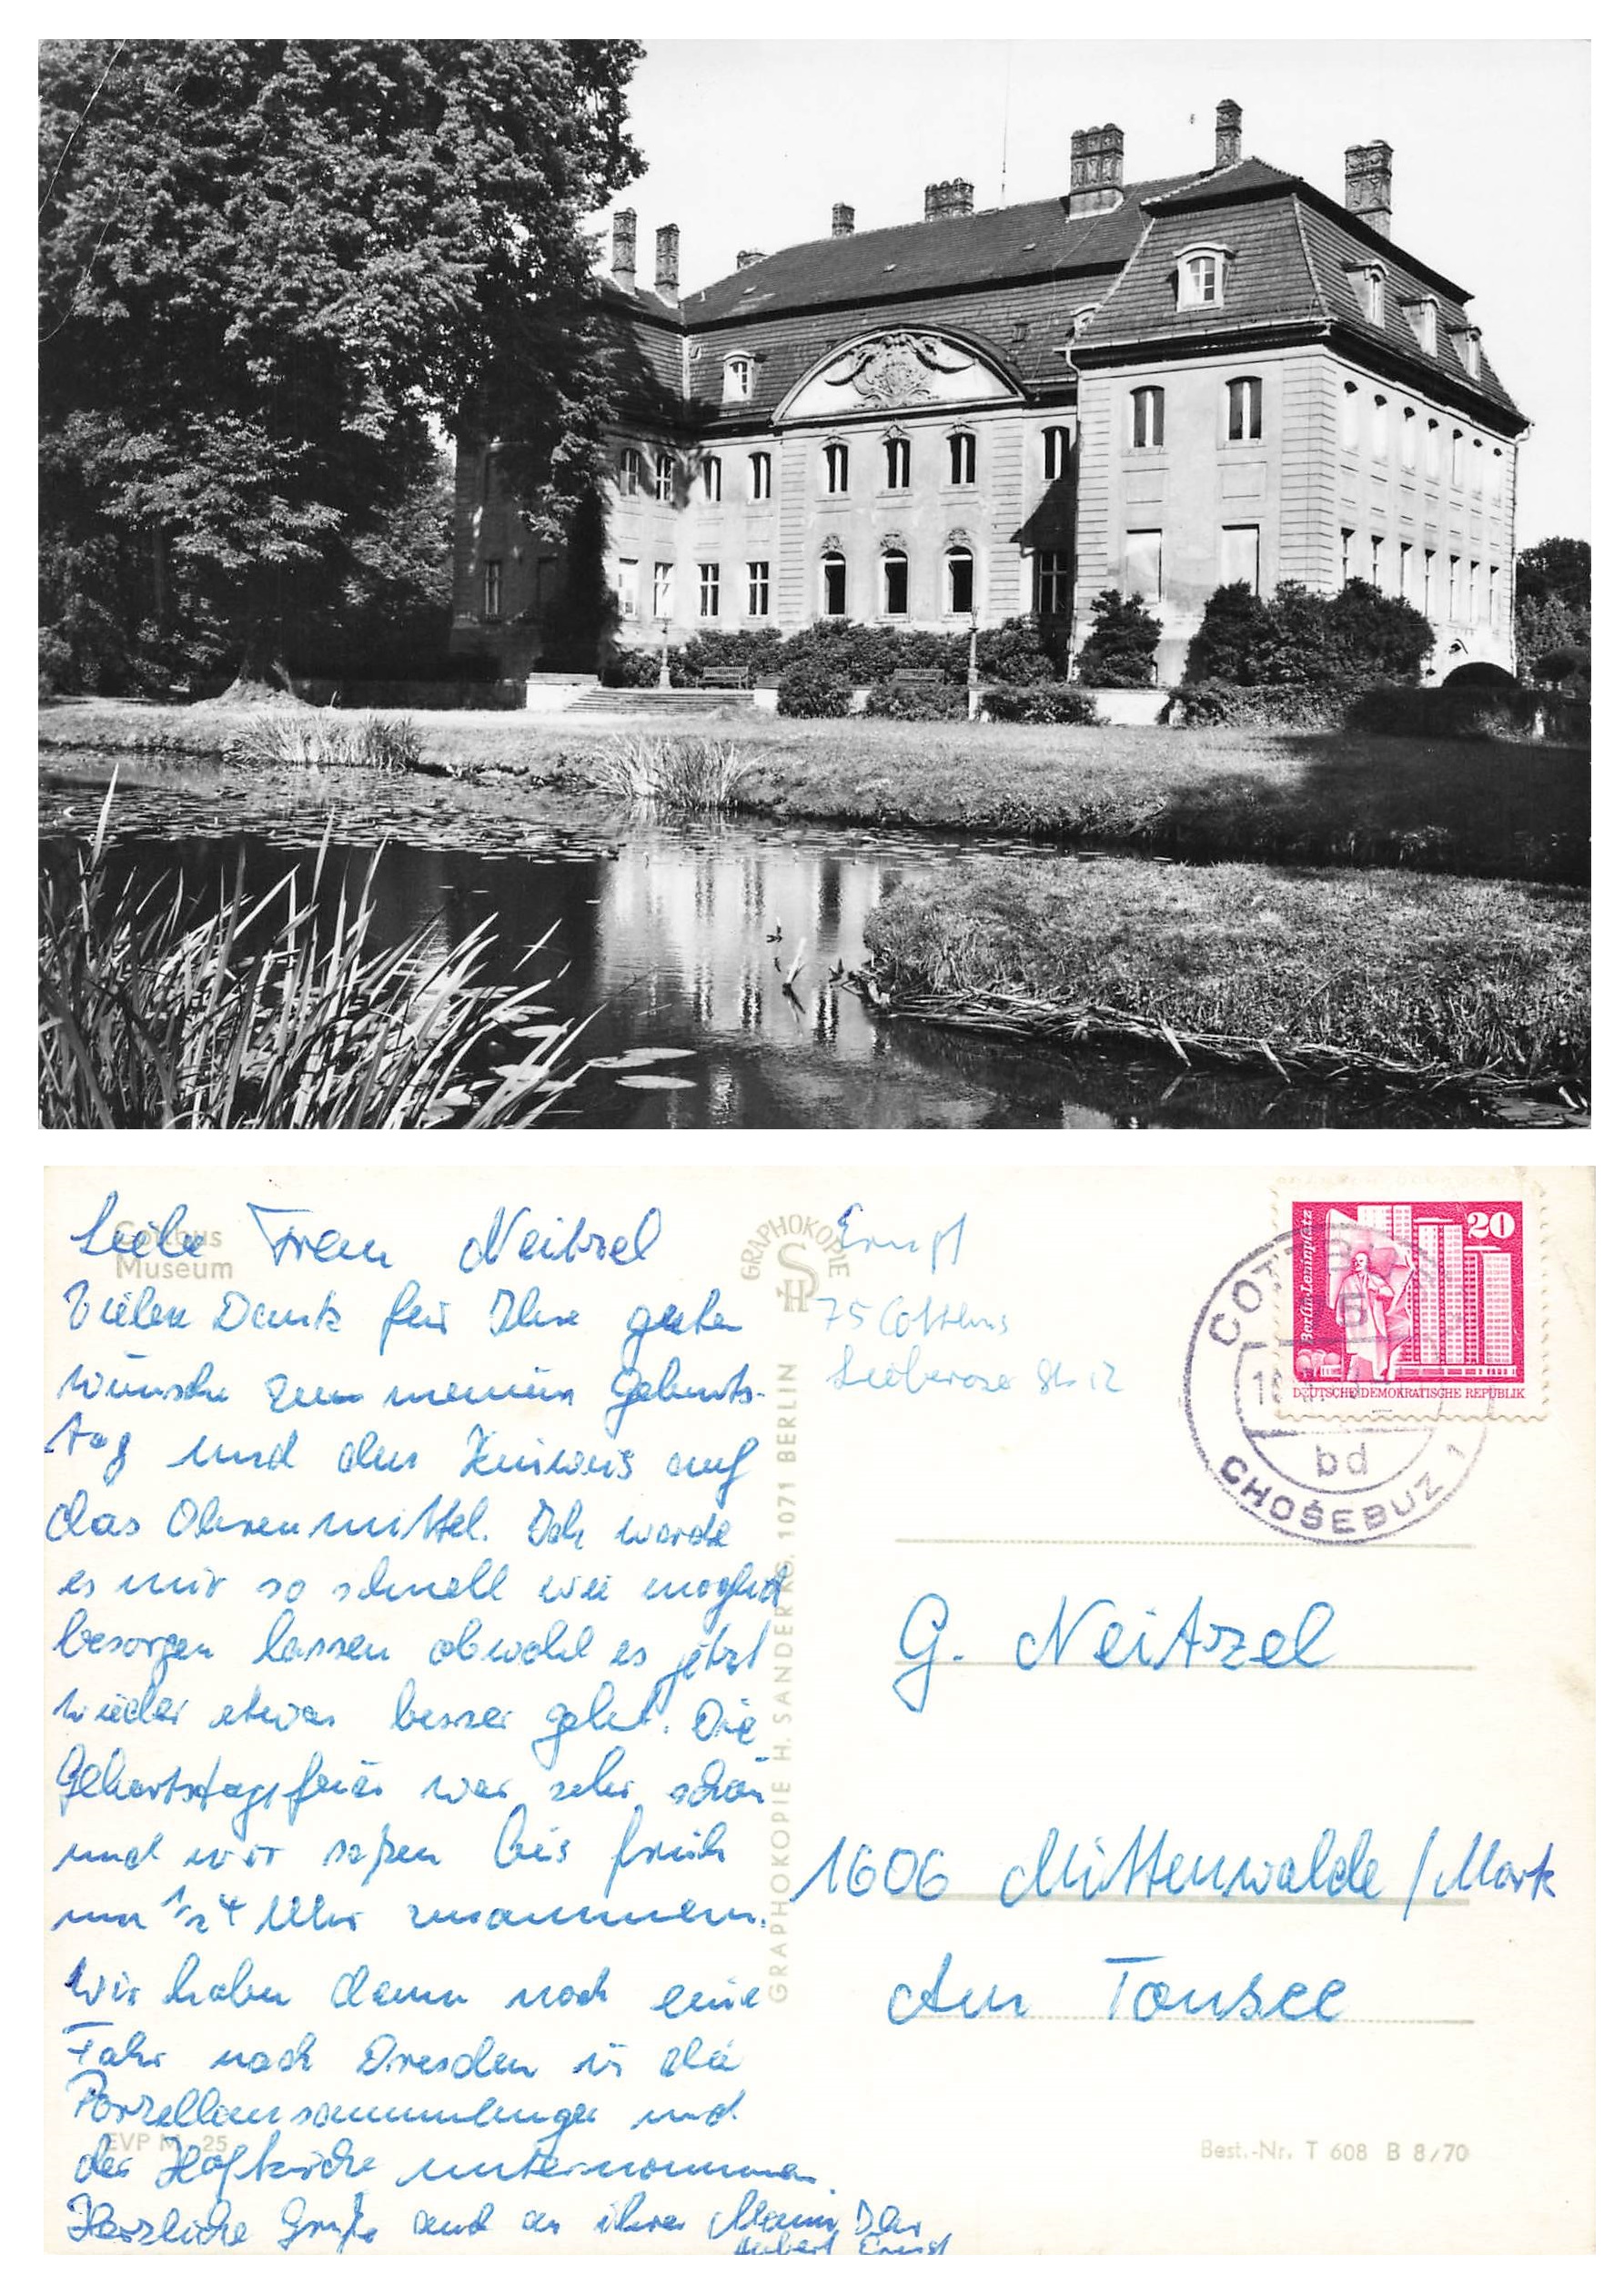 Cottbus
Museum
Liebe Frau Neitzel
Vielen Dank für Ihre guten
wünsche zum meinem Geburts-
tag und den Hinweis auf
das Ohrenmittel. Ich werde
es mir so schnell wie möglich
besorgen lassen obwohl es jetzt
wieder etwas besser geht. Die
Geburtstagsfeier war sehr schön
und wir saßen bis früh
um 1/2 4 Uhr zusammen.
Wir haben dann noch eine
Fahr nach Dresden in die
Porzellansammlungen und
der Hofkirche unternommen.
Herzliche Grüße auch an ihren Mann Ihr
Hubert Ernst
EVP M -,25
GRAPHOKOPIE
HS
GRAPHOKOPIE H. SANDER KG. 1071 BERLIN
Ernst
75 Cottbus
Lieberoser Str. 12
20
Berlin-Leninplatz
DEUTSCHE DEMOKRATISCHE REPUBLIK
COTTBUS
bd
CHOŚEBUZ 1
G. Neitzel
1606 Mittenwalde / Mark
Am Tonsee
Best.-Nr. T 608 B 8/70